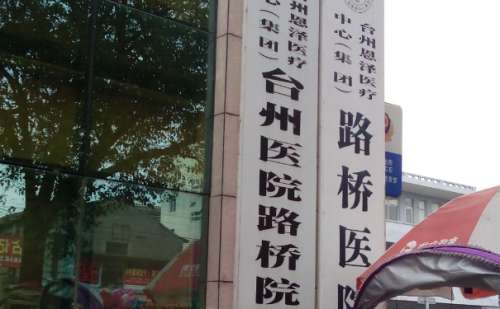 州恩泽医疗
中心（集团）
台州医院路桥院
台州恩泽医疗
中心（集团）
路桥医